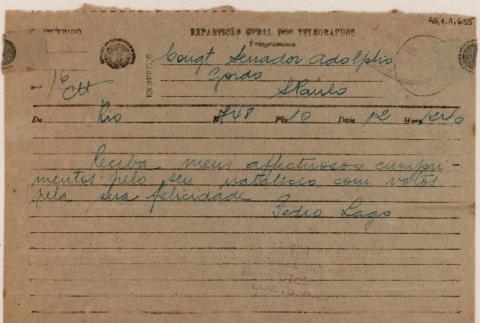 AG,1.1.655
REPARTIÇÃO GERAL DOS TELEGRAPHOS
Telegramma
EM SERVIÇO
Congt Senador Adolpho
Gordo
SPaulo
De Rio N. 748 Pls 10 Data 12 Hora
Receba meus affectuosos cumpri-
mentos pelo seu natalicio com votos
pela sua felicidade
Pedro Lago